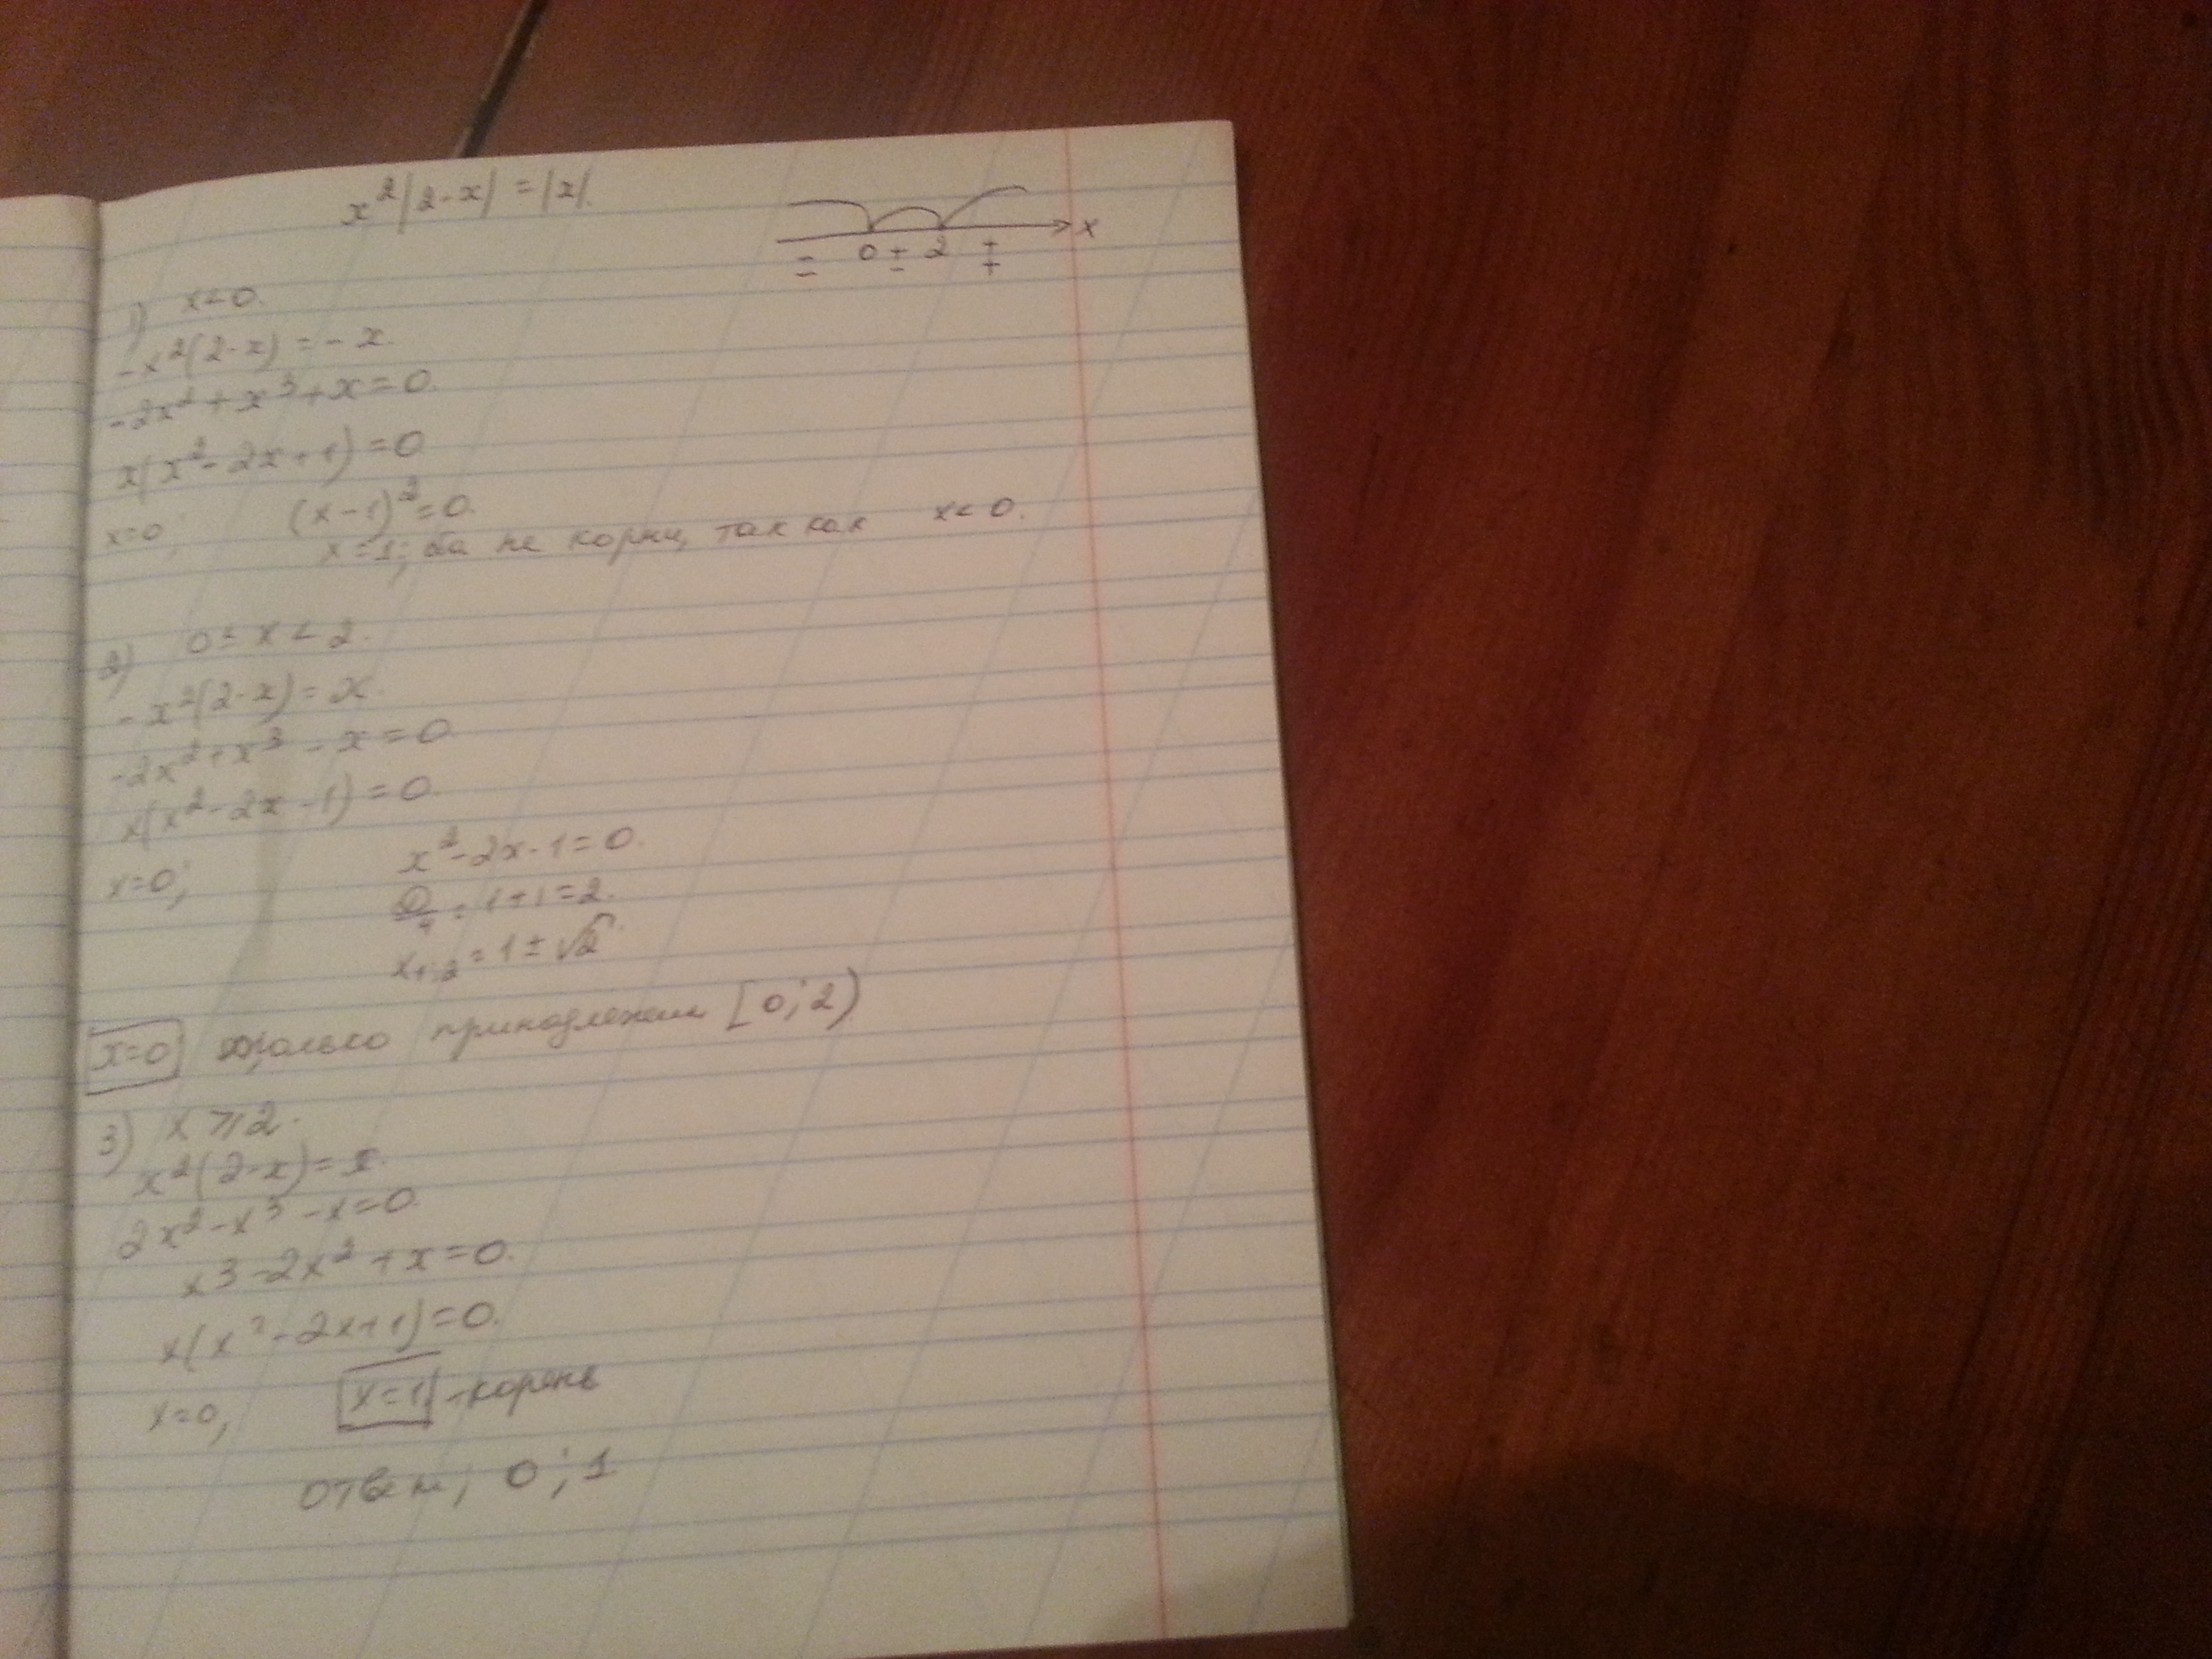 x²|2-x| = |x|.
0 2 x
- + +
- - +
1) x<0.
-x²(2-x) = -x.
-2x² + x³ + x = 0.
x(x² - 2x + 1) = 0
x=0; (x-1)² = 0.
x = 1; оба не корни, так как x < 0.
2) 0 ≤ x < 2.
-x²(2-x) = x.
-2x² + x³ - x = 0
x(x² - 2x - 1) = 0.
x=0; x² - 2x - 1 = 0.
D/4 = 1+1 = 2.
x₁,₂ = 1 ± √2.
x=0 только принадлежит [0; 2)
3) x ≥ 2.
x²(2-x) = x.
2x² - x³ - x = 0.
x3 - 2x² + x = 0.
x(x² - 2x + 1) = 0.
x=0, x=1 - корень
ответ; 0; 1